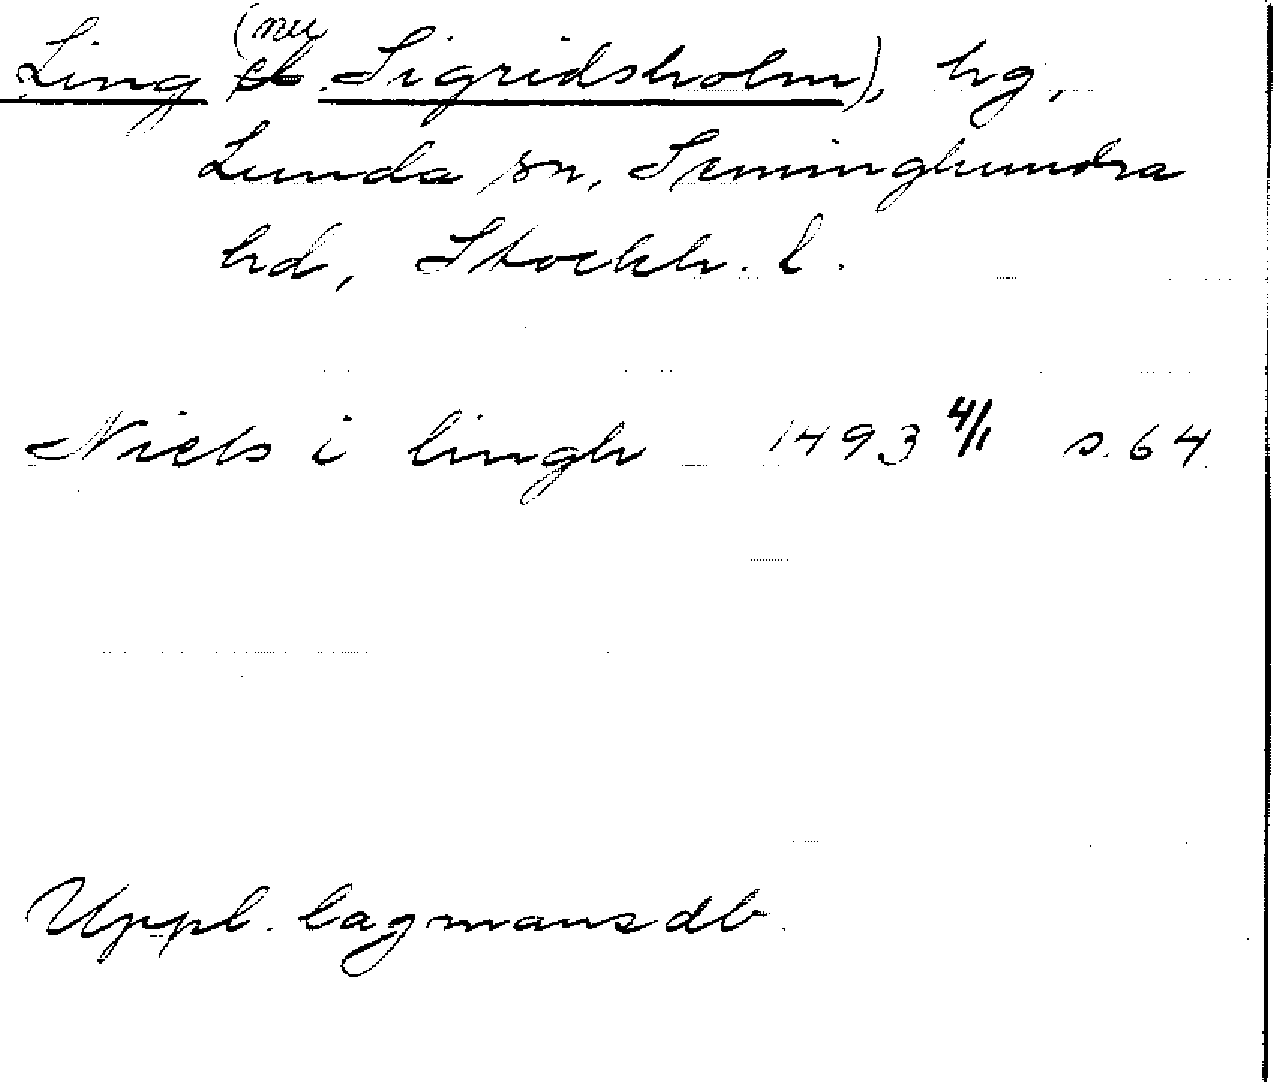 Ling (nu Sigridsholm), hg,
Lunda sn, Seminghundra
hd, Stockh. l.
Niels i lingh 1493 4/1 s. 64
Uppl. lagmansdb